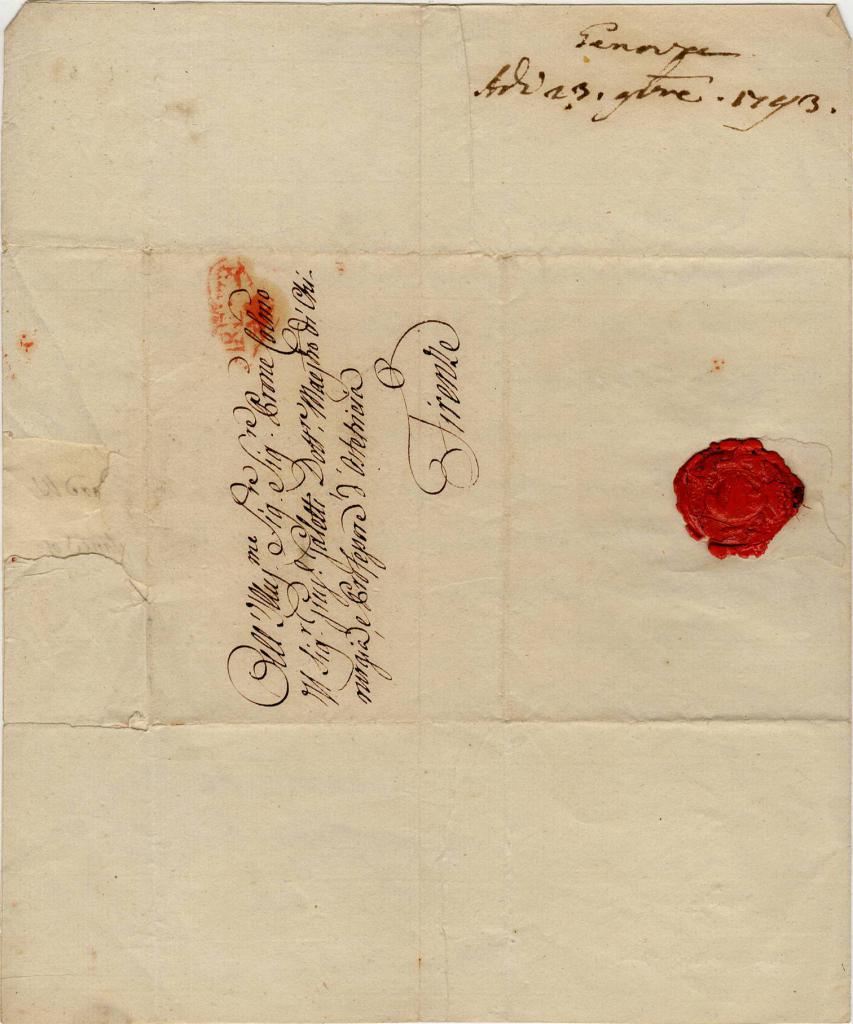 Genova
Adi 23. 9bre. 1793.
All' Ill.mo Sig.re Sig.r Prone Colmo
Il Sig.r Giu.e Galetti Dott.re Maestro di Chi-
rurgia, e Professore d'Ostetricia
Firenze